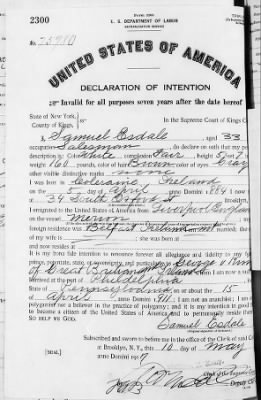 U. S. DEPARTMENT OF LABOR
NATURALIZATION SERVICE
2300
No. 25980
UNITED STATES OF AMERICA
DECLARATION OF INTENTION
Invalid for all purposes seven years after the date hereof
State of New York,
County of Kings,
ss:
In the Supreme Court of Kings
I, Samuel Esdale, aged 33
occupation Salesman, do declare on oath that my
description is: Color White, complexion Fair, height 5
weight 160 pounds, color of hair Brown, color of eyes Gray
other visible distinctive marks none
I was born in Coleraine Ireland
on the day of April, anno Domini 1884
at 34 South Oxford St
I emigrated to the United States of America from Liverpool England
Merion
foreign residence was Belfast Ireland
of my wife is ; she was born at
and now resides at
It is my bona fide intention to renounce forever all allegiance and fidelity to any
prince, potentate, state, or sovereignty, and particularly to George V King
of Great Britain and Ireland
arrived at the port of Philadelphia
State of Pennsylvania, on or about the 15
April, anno Domini 1911; I am not an anarchist;
polygamist nor a believer in the practice of polygamy; and it is my intention in good
to become a citizen of the United States of America and to permanently reside
SO HELP ME GOD.
Samuel Esdale
Subscribed and sworn to before me in the office of the Clerk of said
[SEAL.]
at Brooklyn, N. Y., this 10 day of May
anno Domini 1917